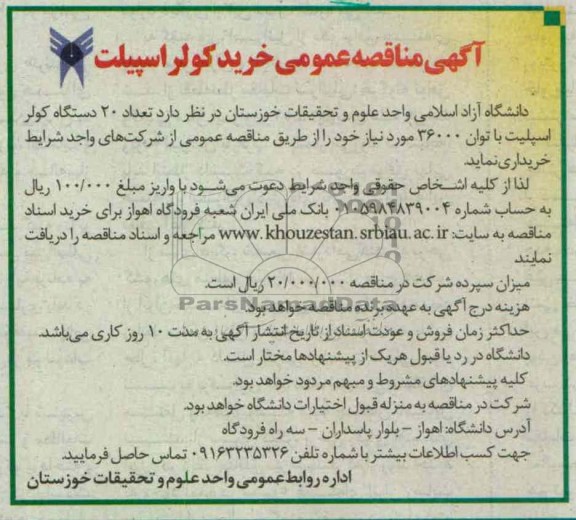 آگهی مناقصه عمومی خرید کولر اسپیلت
دانشگاه آزاد اسلامی واحد علوم و تحقیقات خوزستان در نظر دارد تعداد ۲۰ دستگاه کولر
اسپلیت با توان ۳۶۰۰۰ مورد نیاز خود را از طریق مناقصه عمومی از شرکت‌های واجد شرایط
خریداری نماید.
لذا از کلیه اشخاص حقوقی واجد شرایط دعوت می‌شود با واریز مبلغ ۱۰۰/۰۰۰ ریال
به حساب شماره ۰۱۰۵۹۸۴۸۳۹۰۰۴ بانک ملی ایران شعبه فرودگاه اهواز برای خرید اسناد
مناقصه به سایت: www.khouzestan.srbiau.ac.ir مراجعه و اسناد مناقصه را دریافت
نمایند
میزان سپرده شرکت در مناقصه ۲۰/۰۰۰/۰۰۰ ریال است.
هزینه درج آگهی به عهده برنده مناقصه خواهد بود.
ParsNamadData
حداکثر زمان فروش و عودت اسناد از تاریخ انتشار آگهی به مدت ۱۰ روز کاری می‌باشد.
دانشگاه در رد یا قبول هریک از پیشنهادها مختار است.
کلیه پیشنهادهای مشروط و مبهم مردود خواهد بود.
شرکت در مناقصه به منزله قبول اختیارات دانشگاه خواهد بود.
آدرس دانشگاه: اهواز – بلوار پاسداران – سه راه فرودگاه
جهت کسب اطلاعات بیشتر با شماره تلفن ۰۹۱۶۳۲۳۵۳۲۶ تماس حاصل فرمایید.
اداره روابط عمومی واحد علوم و تحقیقات خوزستان